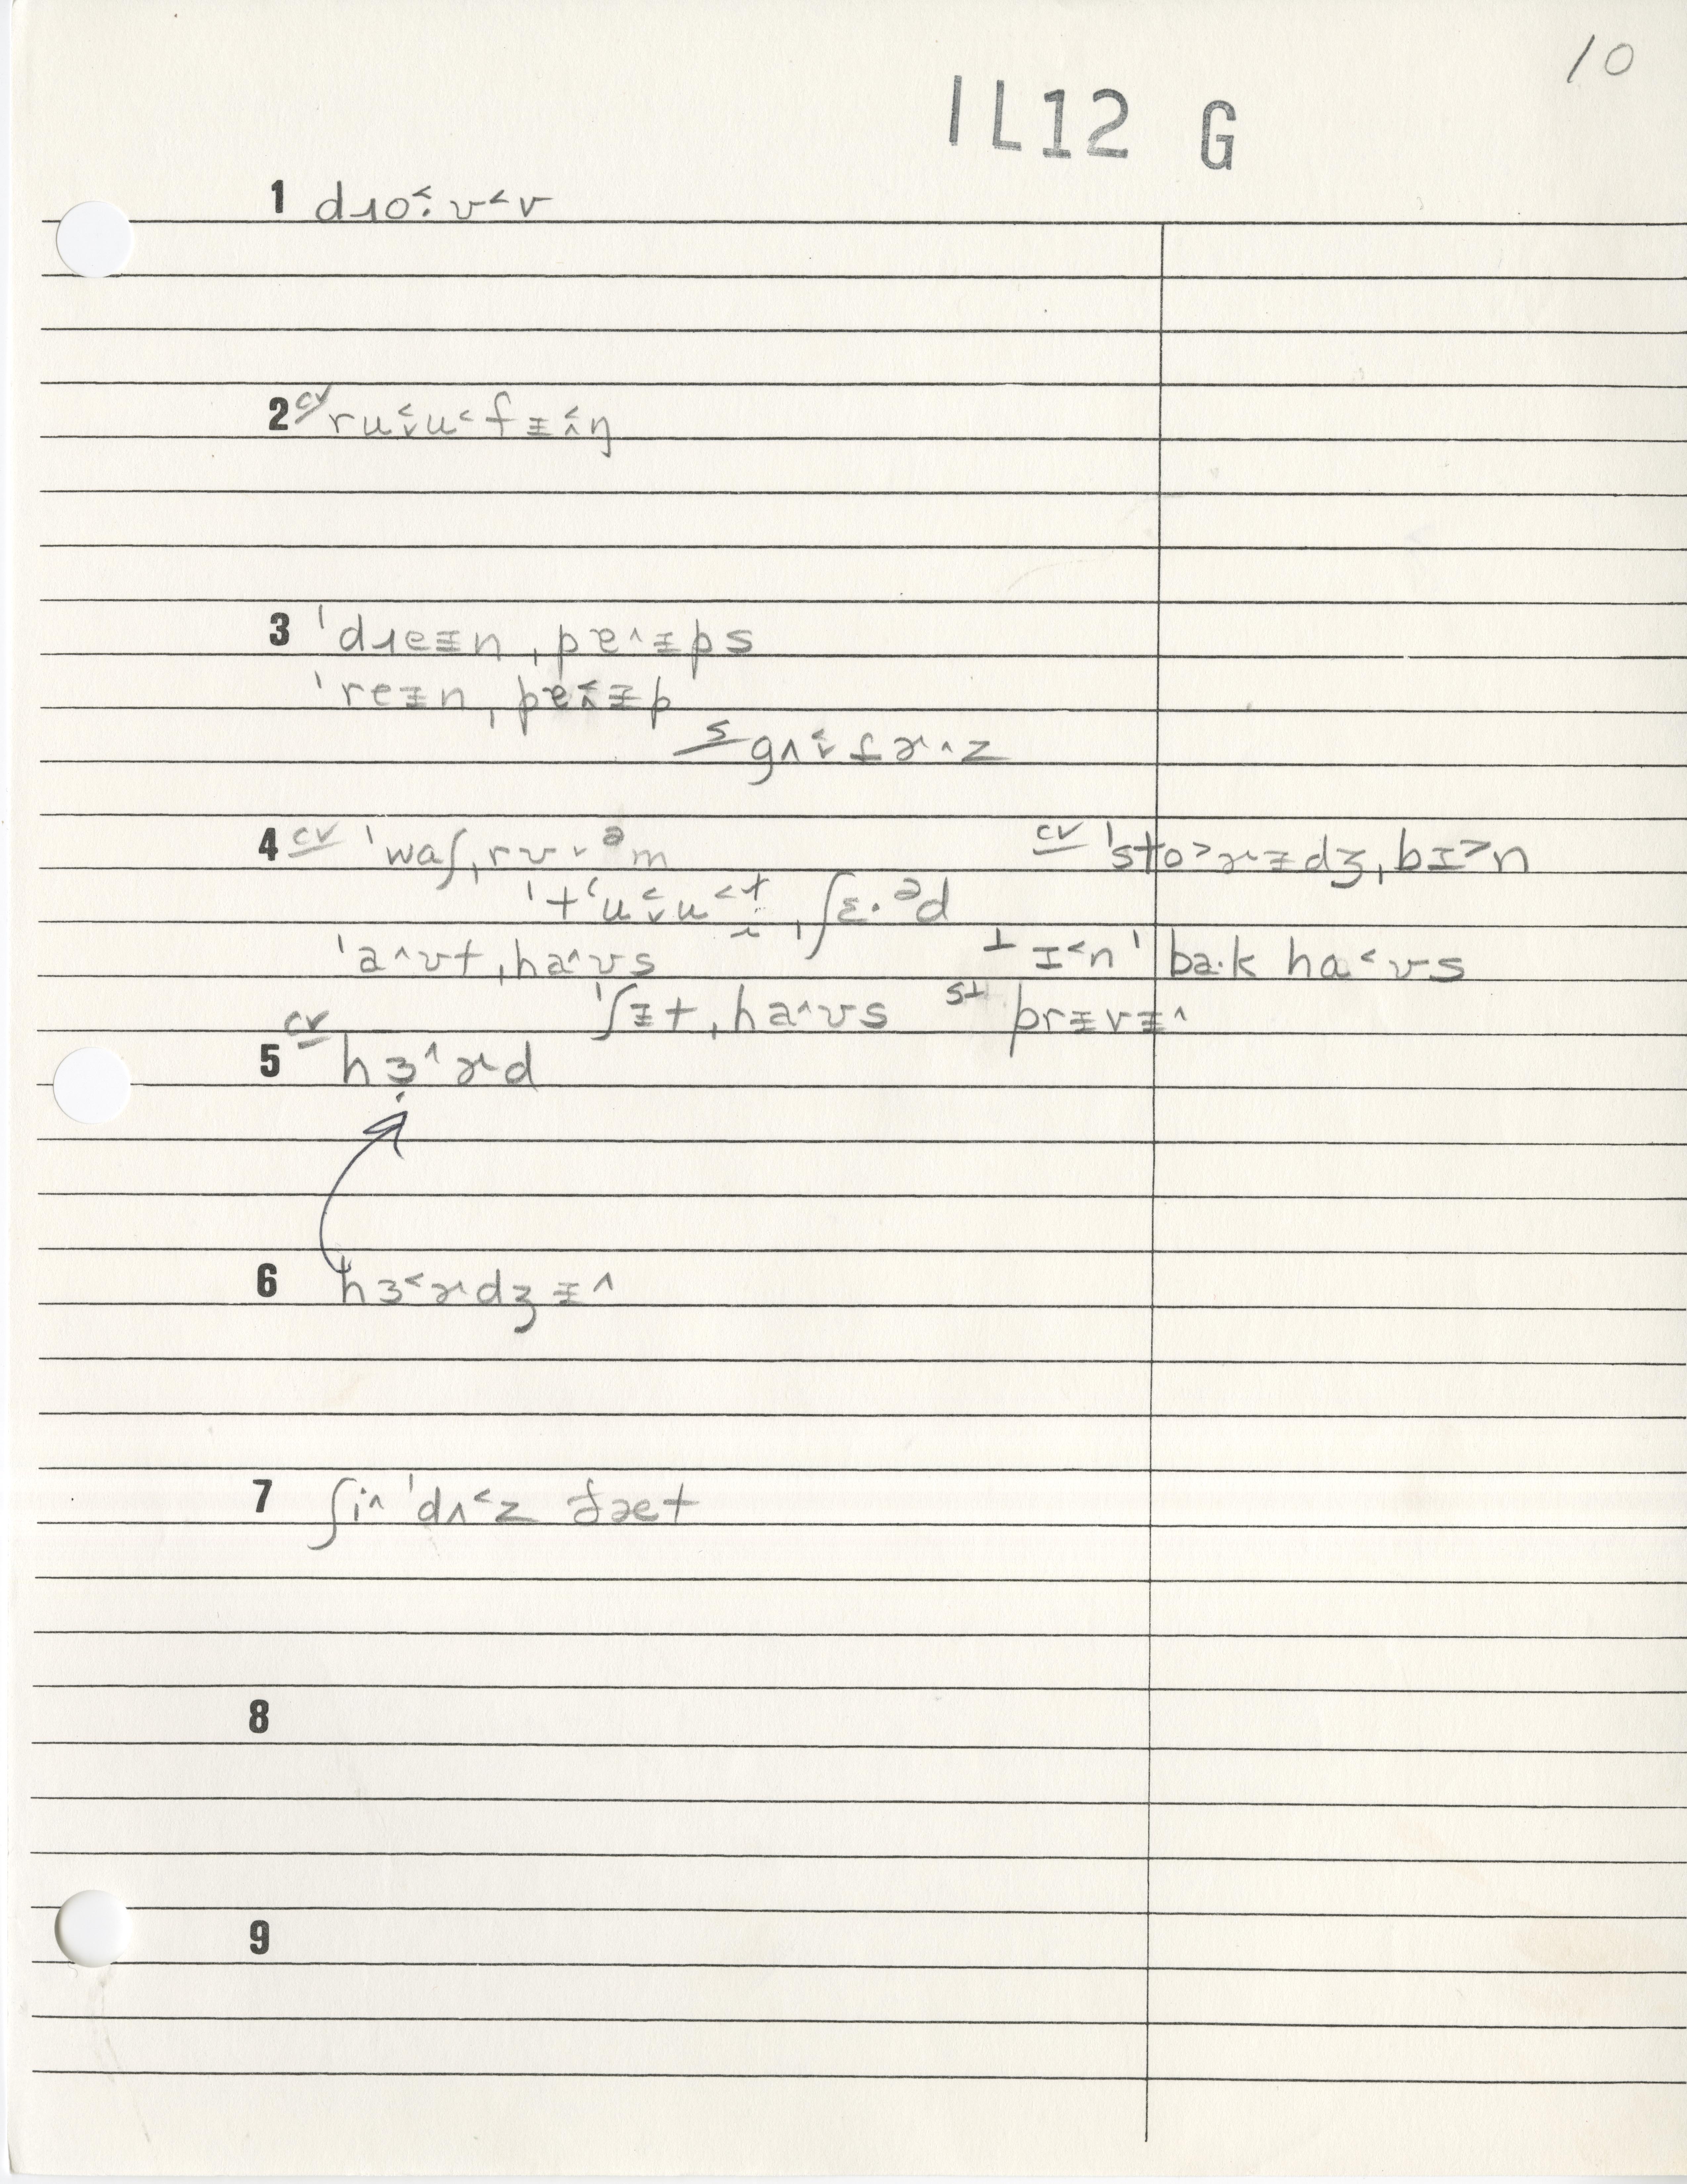 10
IL12 G
1 dɹo˂̣ʊ˂v
2 cv ru˂̬u˂fɪ̵˂̭ŋ
3 ˈdɹeɪ̵n ˌpɐ˄ɪ̵ps
ˈreɪ̵n ˌpɐ˂̭ɪ̵p
s gʌ˂̬ɾɚ˄z
4 cv ˈwaʃˌrʊ˕ᵊm cv ˈsto˃ɚɪ̵dʒˌbɪ˃n
ˈtʻu˂̬u˂t ˌʃɛ·ᵊd
ˈa˄ʊtˌha˄ʊs ⊥ ɪ˂nˈbak ha˂ʊs
ˈʃɪ̵tˌha˄ʊs s⊥ prɪ̵vɪ̵˄
5 cv hɜ̣˄ɚd
6 hɜ˂ɚdʒɪ̵˄
7 ʃi˄ ˈdʌ˂z
8
9